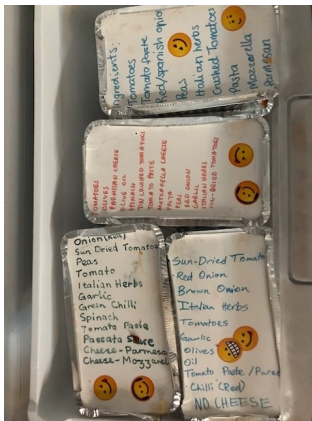 Ingredients:
Tomatoes
Tomato paste
Red/spanish onio
Peas
Italian herbs
Crushed Tomatoes
Pasta
Mozzarella
Parmesan
OLIVES
PARMESAN CHEESE
OLIVE OIL
SPINACH
TOMATO PASTE
MOZZARELLA CHEESE
PASTA
PEAS
RED ONION
GARLIC
ITALIAN HERBS
SUN-DRIED TOMATOES
Onion (Red)
Sun Dried Tomato
Peas
Tomato
Italian Herbs
Garlic
Green Chilli
Spinach
Tomato Pasta
Passata sauce
Cheese-Parmesa
Cheese-Mozzarel
Sun-Dried Tomato
Red Onion
Brown Onion
Italian Herbs
Tomatoes
Garlic
Olives
Oil
Tomato Paste/Puree
Chilli (Red)
NO CHEESE